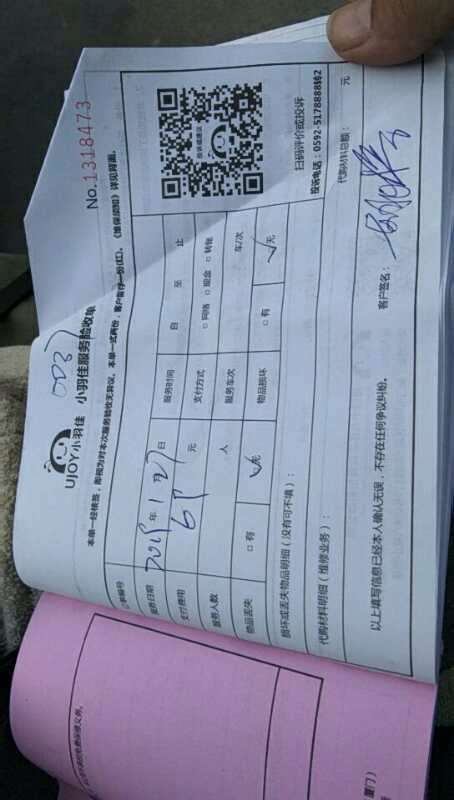 No.1318473
003
UJOY小羽佳 小羽佳服务验收单
本单一经签签，即视为对本次服务验收无异议。本单一式两份，客户留存一份(红)。《维保须知》详见背面。
订单编号
服务日期 2019年1月27日 服务时间 自 至 止
支付费用 69元 支付方式 □网络 □现金 □转账
服务人数 人 服务车次 车/次
物品丢失 □有 ✓无 物品损坏 □有 ✓无
投诉或建议
扫码评价或投诉
投诉电话：0592-5178888转2
损坏或丢失物品明细（没有可不填）：
代购材料明细（维修业务）： 代购材料总额： 元
以上填写信息已经本人确认无误，不存在任何争议纠纷。 客户签名：
厦门）